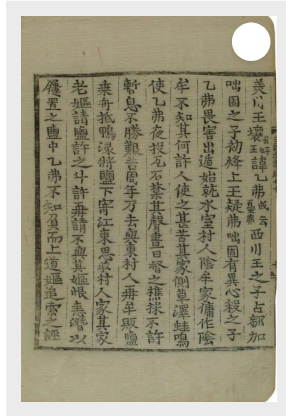 美川王一云好壤王諱乙弗或云憂弗西川王之子古鄒加
咄固之子初烽上王疑弟咄固有異心殺之子
乙弗畏害出遁始就水室村人陰牟家傭作陰
牟不知其何許人使之甚苦其家側草澤蛙鳴
使乙弗夜投瓦石禁其聲晝日督之樵採不許
暫息不勝艱苦周年乃去與東村人再牟販鹽
乘舟抵鴨淥將鹽下寄江東思收村人家其家
老嫗請鹽許之斗許再請不與其嫗恨恚潛以
屨置之鹽中乙弗不知負而上道嫗追索之誣